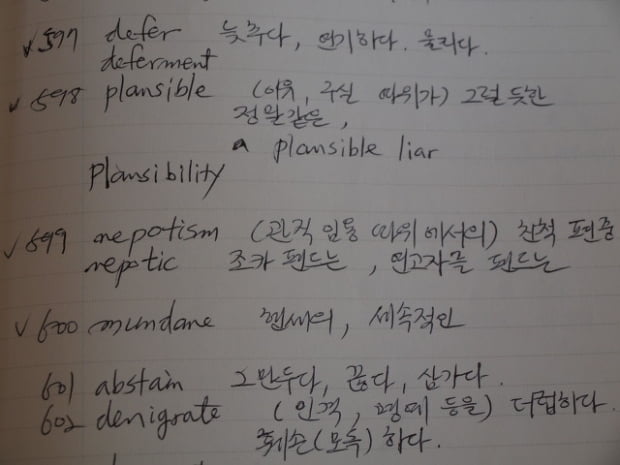 597 defer 늦추다, 연기하다. 물리다.
deferment
598 plansible (이유, 구실 따위가) 그럴 듯한
정말같은,
a plansible liar
plansibility
599 nepotism (관직 임용 따위에서의) 친척 편중
nepotic 조카 편드는, 연고자를 편드는
600 mundane 현세의, 세속적인
601 abstain 그만두다, 끊다, 삼가다.
602 denigrate (인격, 명예 등을) 더럽히다.
훼손(모독)하다.